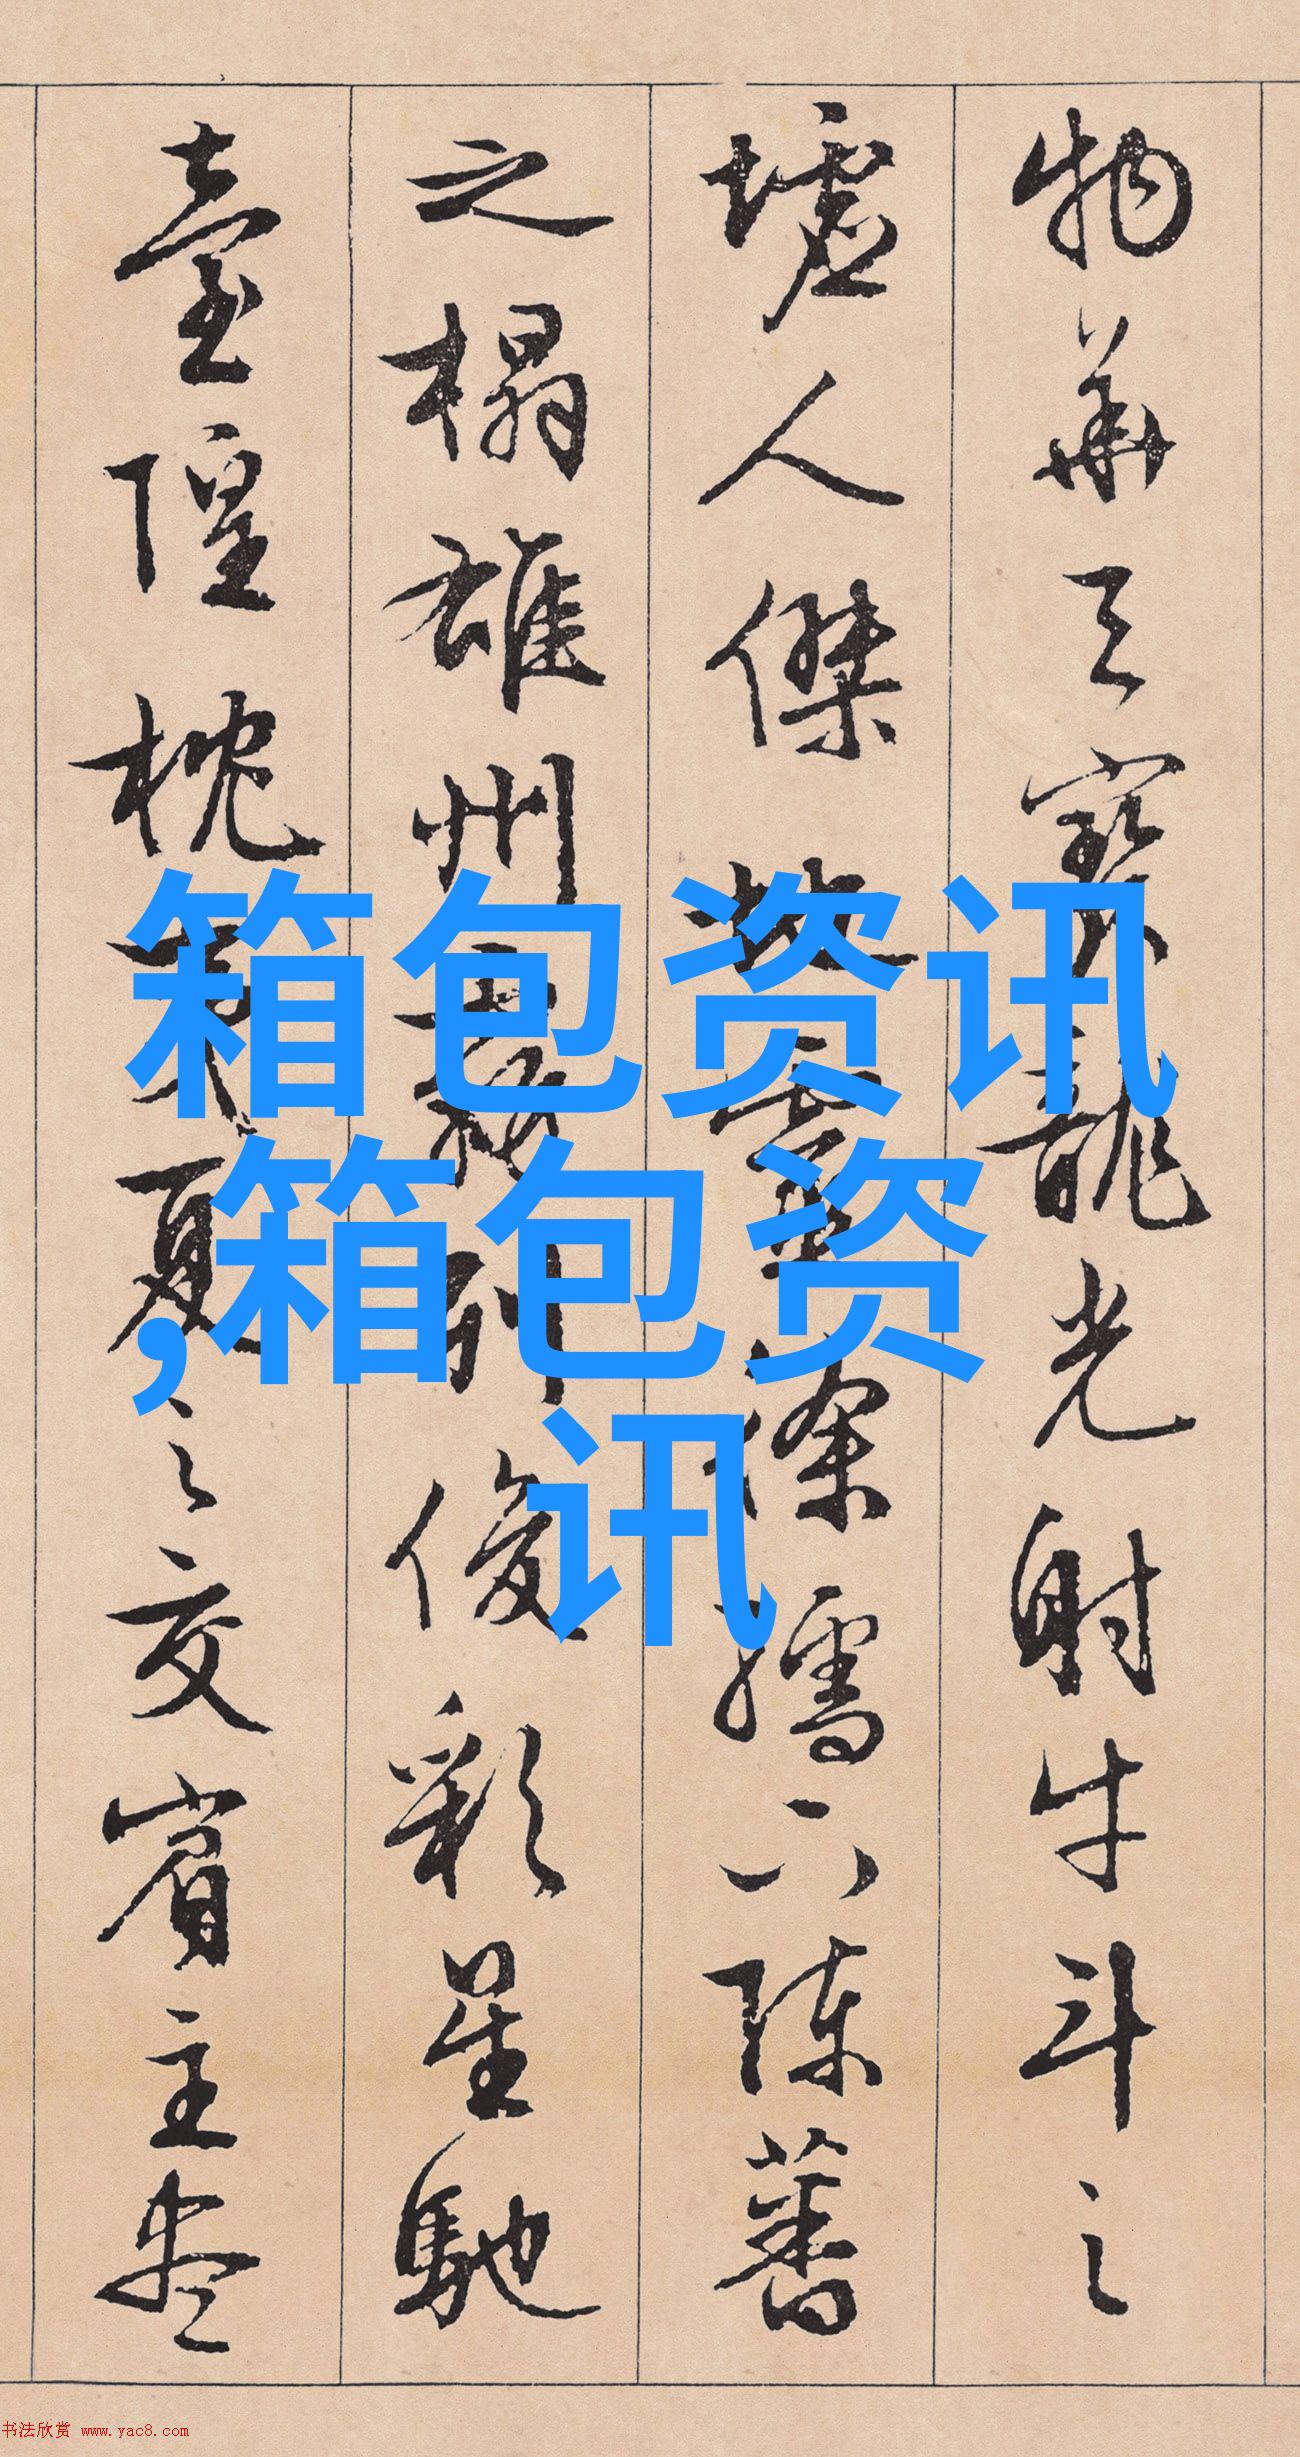 物華天寶龍光射牛斗之
墟人傑地靈徐孺下陳蕃
之榻雄州霧列俊彩星馳
臺隍枕夷夏之交賓主盡
箱包资讯
,箱包资
讯
书法欣赏 www.yac8.com